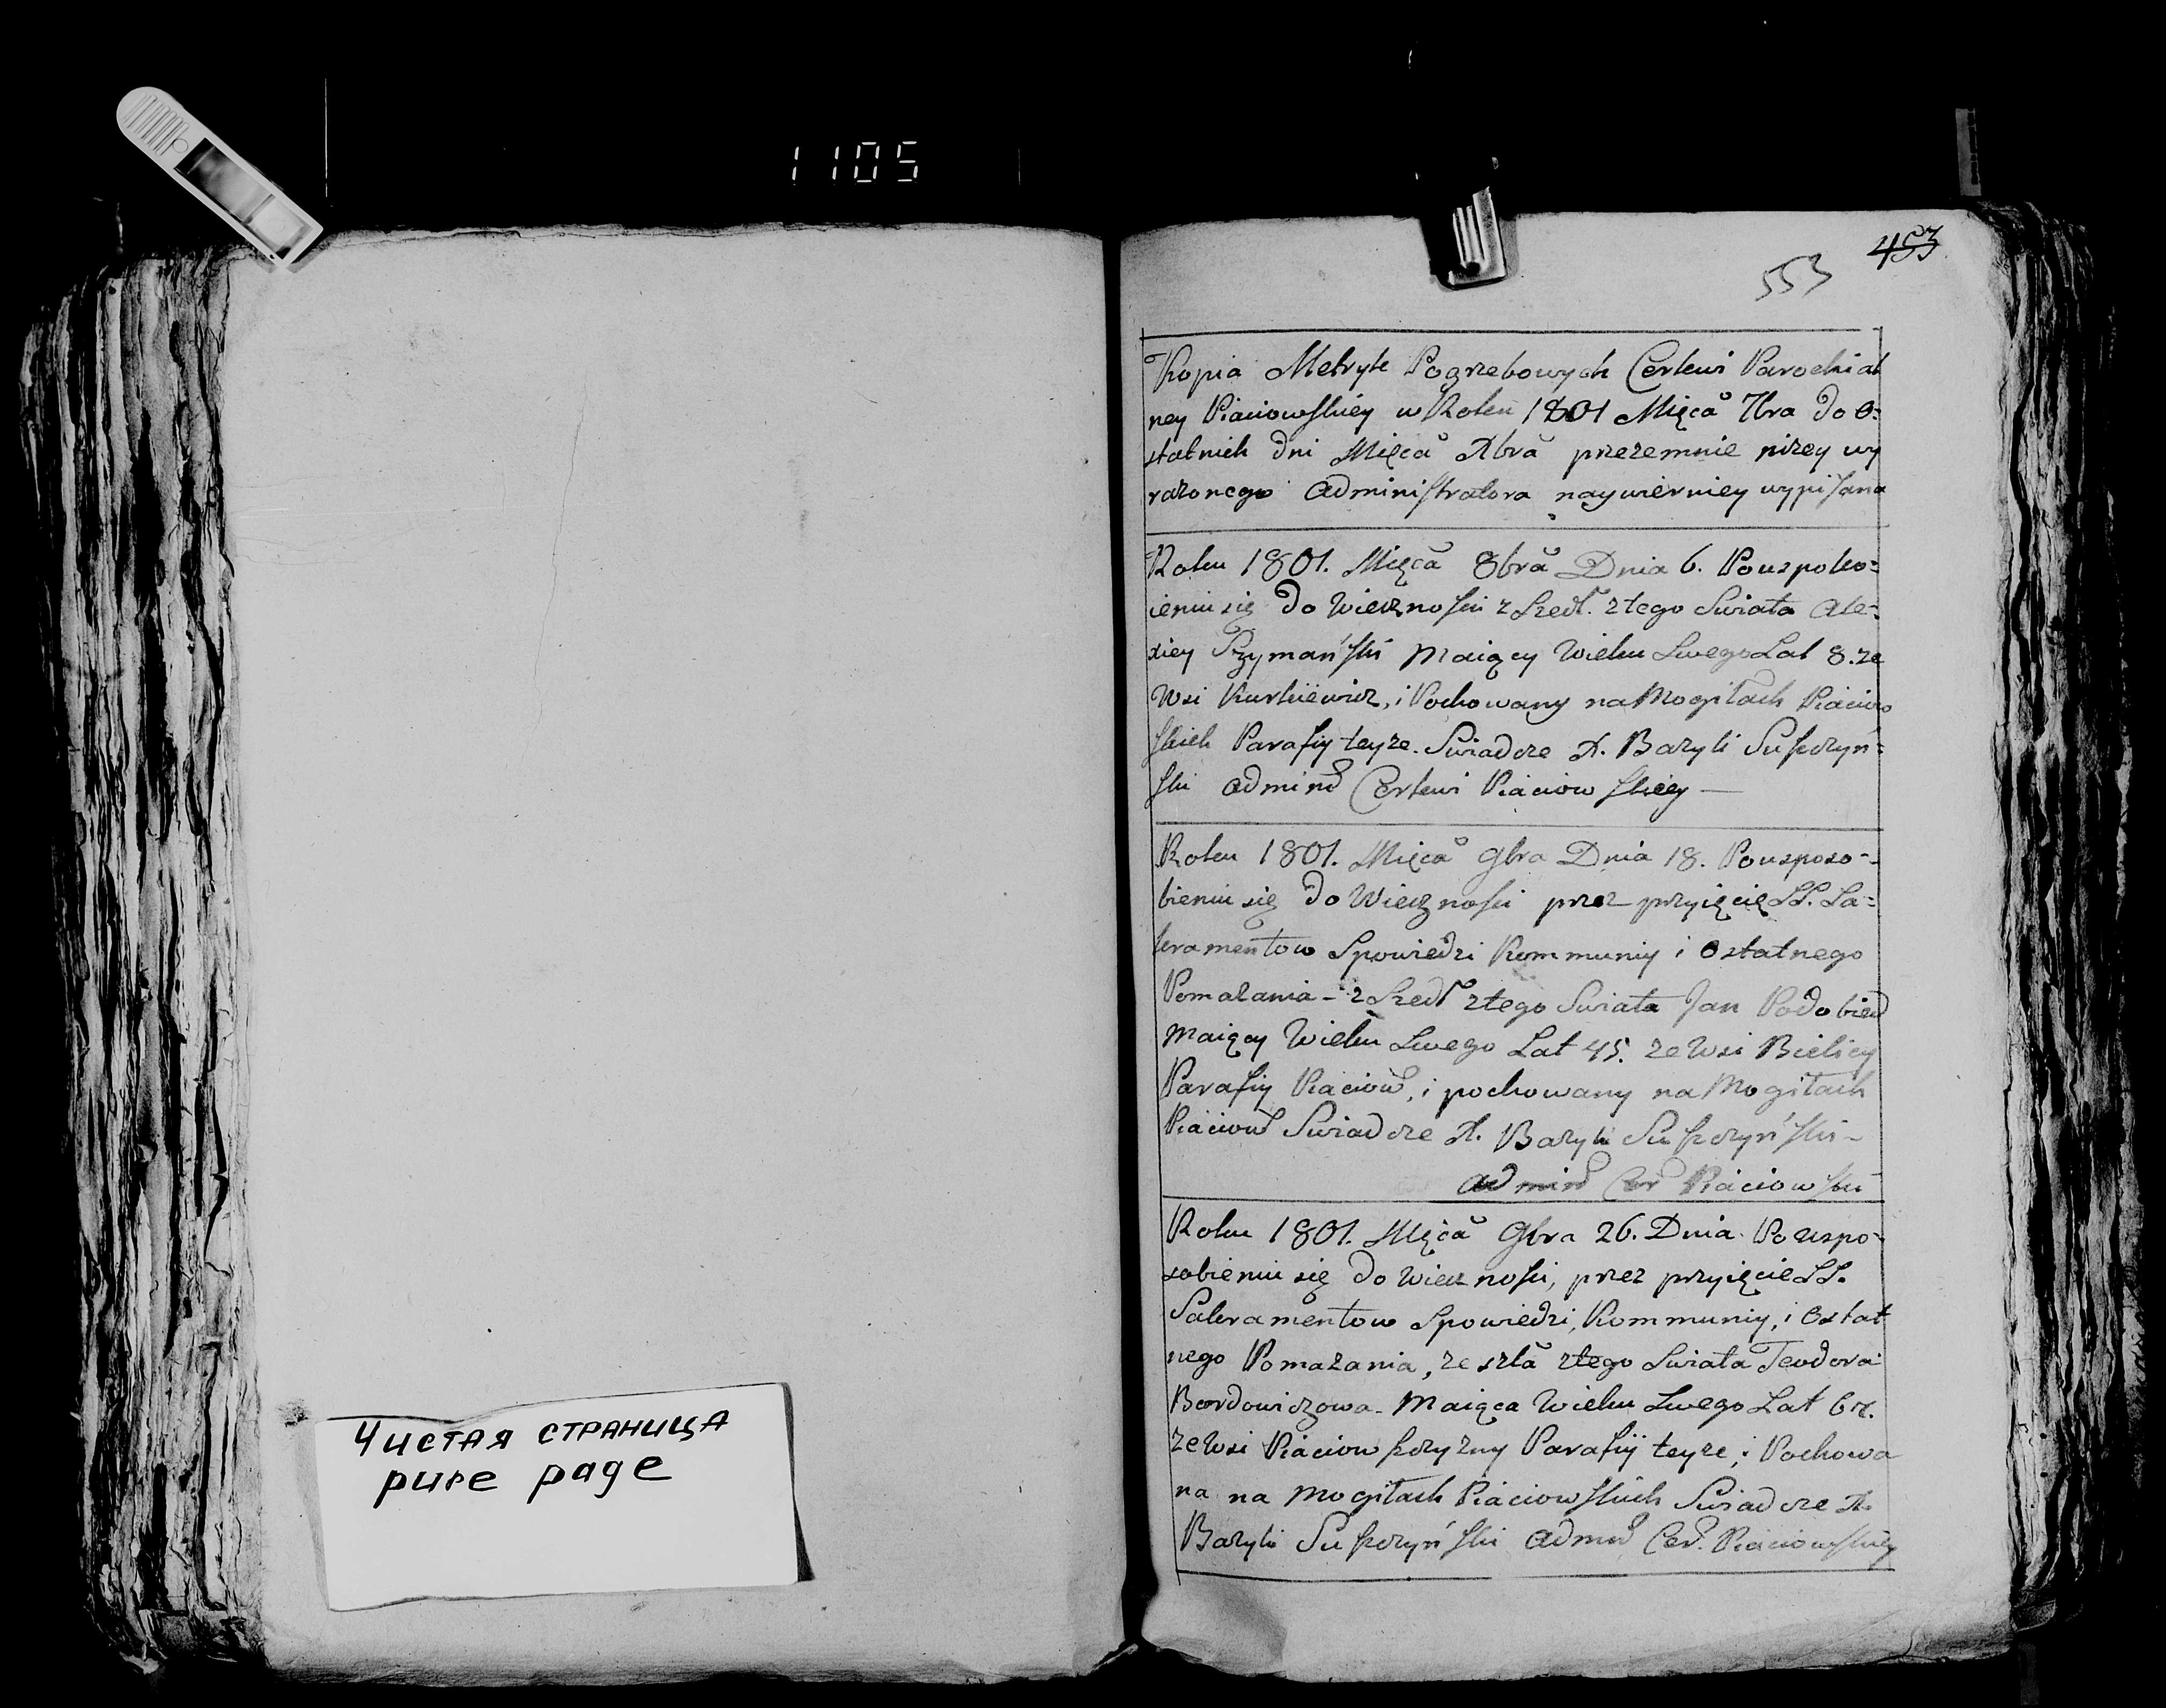 1105
453
553
Kopia Metryk Pogrzebowych Cerkwi Parochial
ney Piaciowskiey w Roku 1801 Mięcă 7bra do o:
statnich dni Mięcă Xbră przezemnie niżey wy
rażonego Administratora naywierniey wypisana
Roku 1801. Mięcă 8bră Dnia 6. Po uspoko:
ieniu się do Wieczności zszedł z tego Swiata Ale:
xiey Szymański Maiący Wieku Swego Lat 8. ze
Wsi Kurkiewicz, i Pochowany na Mogiłach Piaciwo
skich Parafiy teyże. Swiadcze X. Bazyli Suszczyń:
ski Admind Cerkwi Piaciowskiey
Roku 1801. Mięcă 9bra Dnia 18. Po usposo-
bieniu się do Wieczności przez przyięcię SS. Sa:
kramentow Spowiedzi Kommuniy i Ostatnego
Pomazania - zszedł z tego Swiata Jan Podobied
Maiący Wieku Swego Lat 45. ze Wsi Bielicy
Parafiy Piaciow, i pochowany na Mogiłach
Piaciow Swiadcze X. Bazyli Suszczyński -
Admind Cer Piaciowski
Roku 1801. Mięcă 9bra 26. Dnia. Po uspo-
sobieniu się do Wieczności, przez przyięcie SS.
Sakramentow Spowiedzi, Kommuniy, i Ostat
nego Pomazania, zeszła z tego Swiata Teodora
Maiąca Wieku Swego Lat
ze Wsi Piaciowszczyzny Parafiÿ teyże, i Pochowa
na na Mogiłach Piaciowskich Swiadcze X.
Bazyli Suszczyński Admind Cer. Piaciowskiey
Чистая страница
pure page